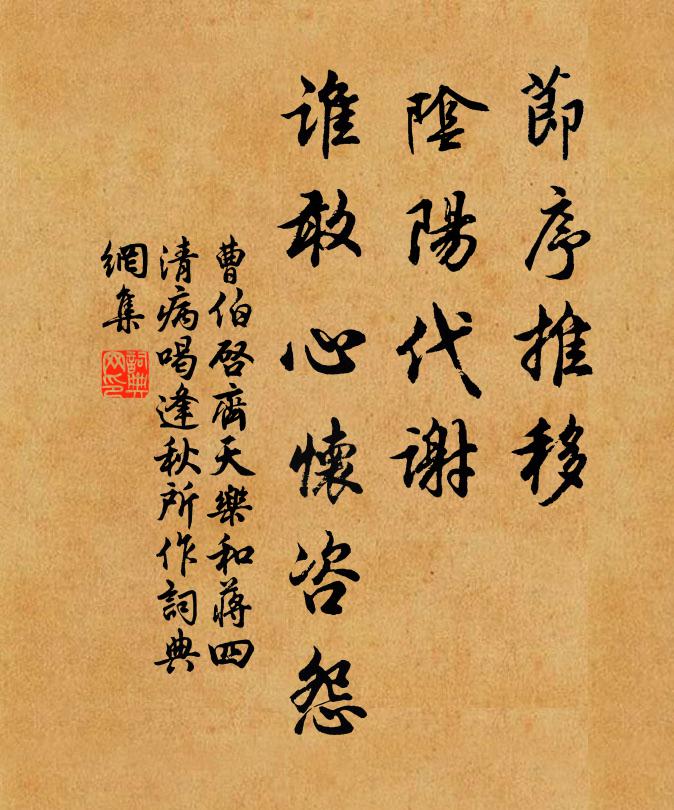 節序推移
陰陽代謝
誰敢心懷咨怨
曹伯啓齊天樂和蔣四
清病喝逢秋所作詞典
網集
詞典網印